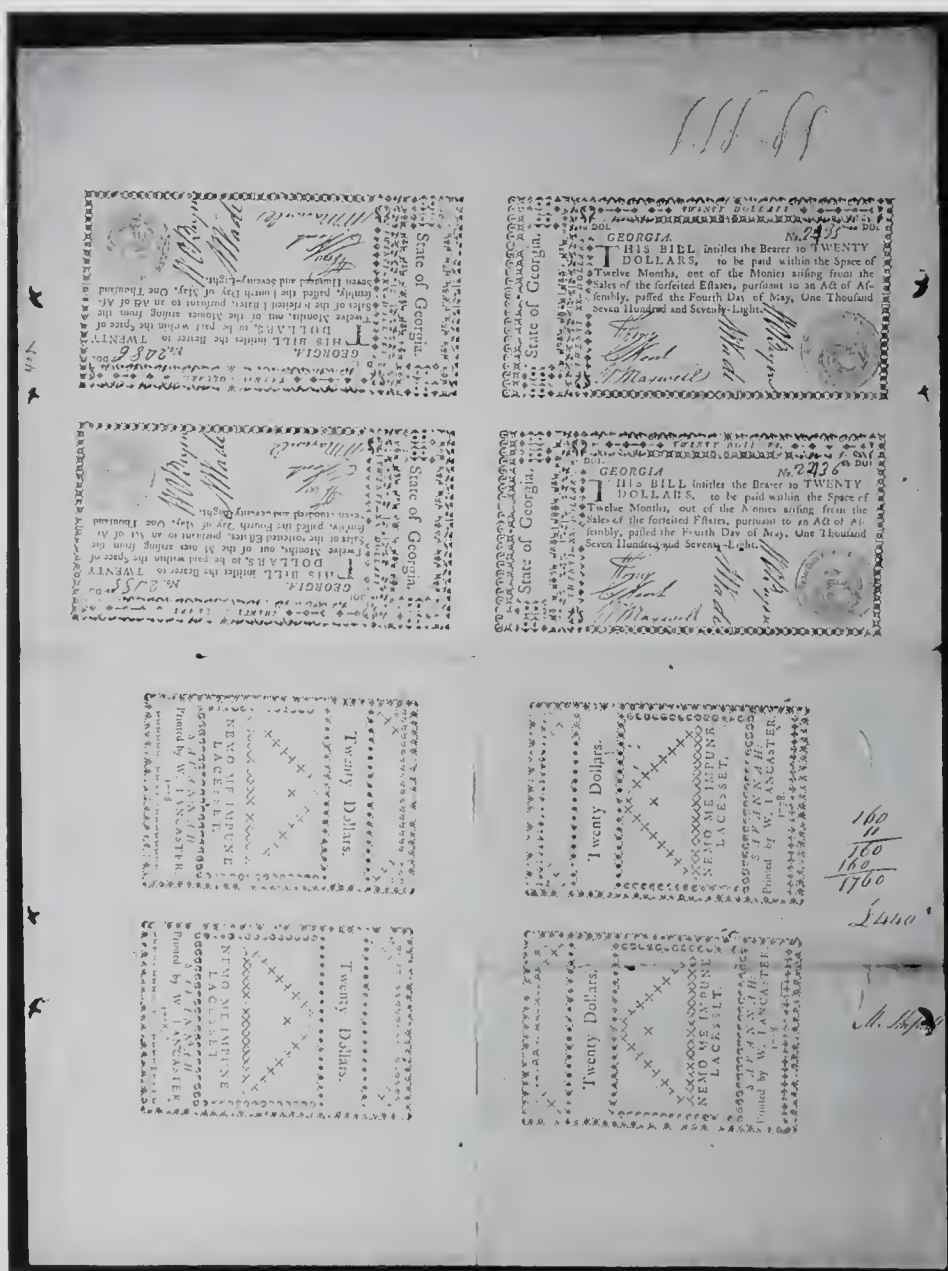 State of Georgia.
TWENTY DOLLARS
DOL
GEORGIA.
No. 2086
THIS BILL intitles the Bearer to TWENTY
DOLLARS, to be paid within the Space of
Twelve Months, out of the Monies arising from the
Sales of the forfeited Eſtates, pursuant to an Act of Aſ-
ſembly, paſſed the Fourth Day of May, One Thouſand
Seven Hundred and Seventy-Eight.
W Maxwell
State of Georgia.
TWENTY DOLLARS
DOL
GEORGIA.
THIS BILL intitles the Bearer to TWENTY
DOLLARS, to be paid within the Space of
Twelve Months, out of the Monies arising from the
Sales of the forfeited Eſtates, pursuant to an Act of Aſ-
ſembly, paſſed the Fourth Day of May, One Thouſand
Seven Hundred and Seventy-Light.
W Maxwell
Wade
State of Georgia.
GEORGIA.
THIS BILL intitles the Bearer to TWENTY
DOLLARS, to be paid within the Space of
Twelve Months, out of the Monies arising from the
Sales of the forfeited Eſtates, pursuant to an Act of Aſ-
ſembly, paſſed the Fourth Day of May, One Thouſand
Seven Hundred and Seventy-Eight.
W Maxwell
Wade
State of Georgia.
DOL
GEORGIA
No. 2436
THIS BILL intitles the Bearer to TWENTY
DOLLARS, to be paid within the Space of
Twelve Months, out of the Monies arising from the
Sales of the forfeited Eſtates, pursuant to an Act of Aſ-
ſembly, paſſed the Fourth Day of May, One Thouſand
Seven Hundred and Seventy-Eight.
W Maxwell
Wade
Twenty Dollars.
NEMO ME IMPUNE
LACESSET.
SAVANNAH
Printed by W. LANCASTER.
Twenty Dollars.
NEMO ME IMPUNE
LACESSET.
SAVANNAH:
Printed by W. LANCASTER.
1778.
160
11
160
160
1760
£440
Twenty Dollars.
NEMO ME IMPUNE
LACESSET
SAVANNAH
Printed by W. LANCASTER
Twenty Dollars.
NEMO ME IMPUNE
LACESSET.
SAVANNAH:
Printed by W. LANCASTER.